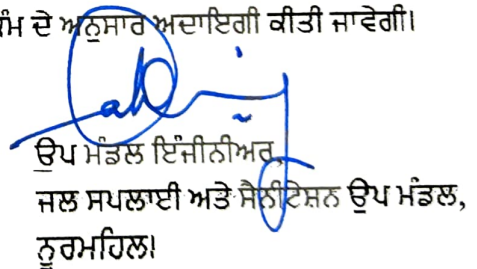 ਕੰਮ ਦੇ ਅਨੁਸਾਰ ਅਦਾਇਗੀ ਕੀਤੀ ਜਾਵੇਗੀ।
ਉਪ ਮੰਡਲ ਇੰਜੀਨੀਅਰ,
ਜਲ ਸਪਲਾਈ ਅਤੇ ਸੈਨੀਟੇਸ਼ਨ ਉਪ ਮੰਡਲ,
ਨੂਰਮਹਿਲ।